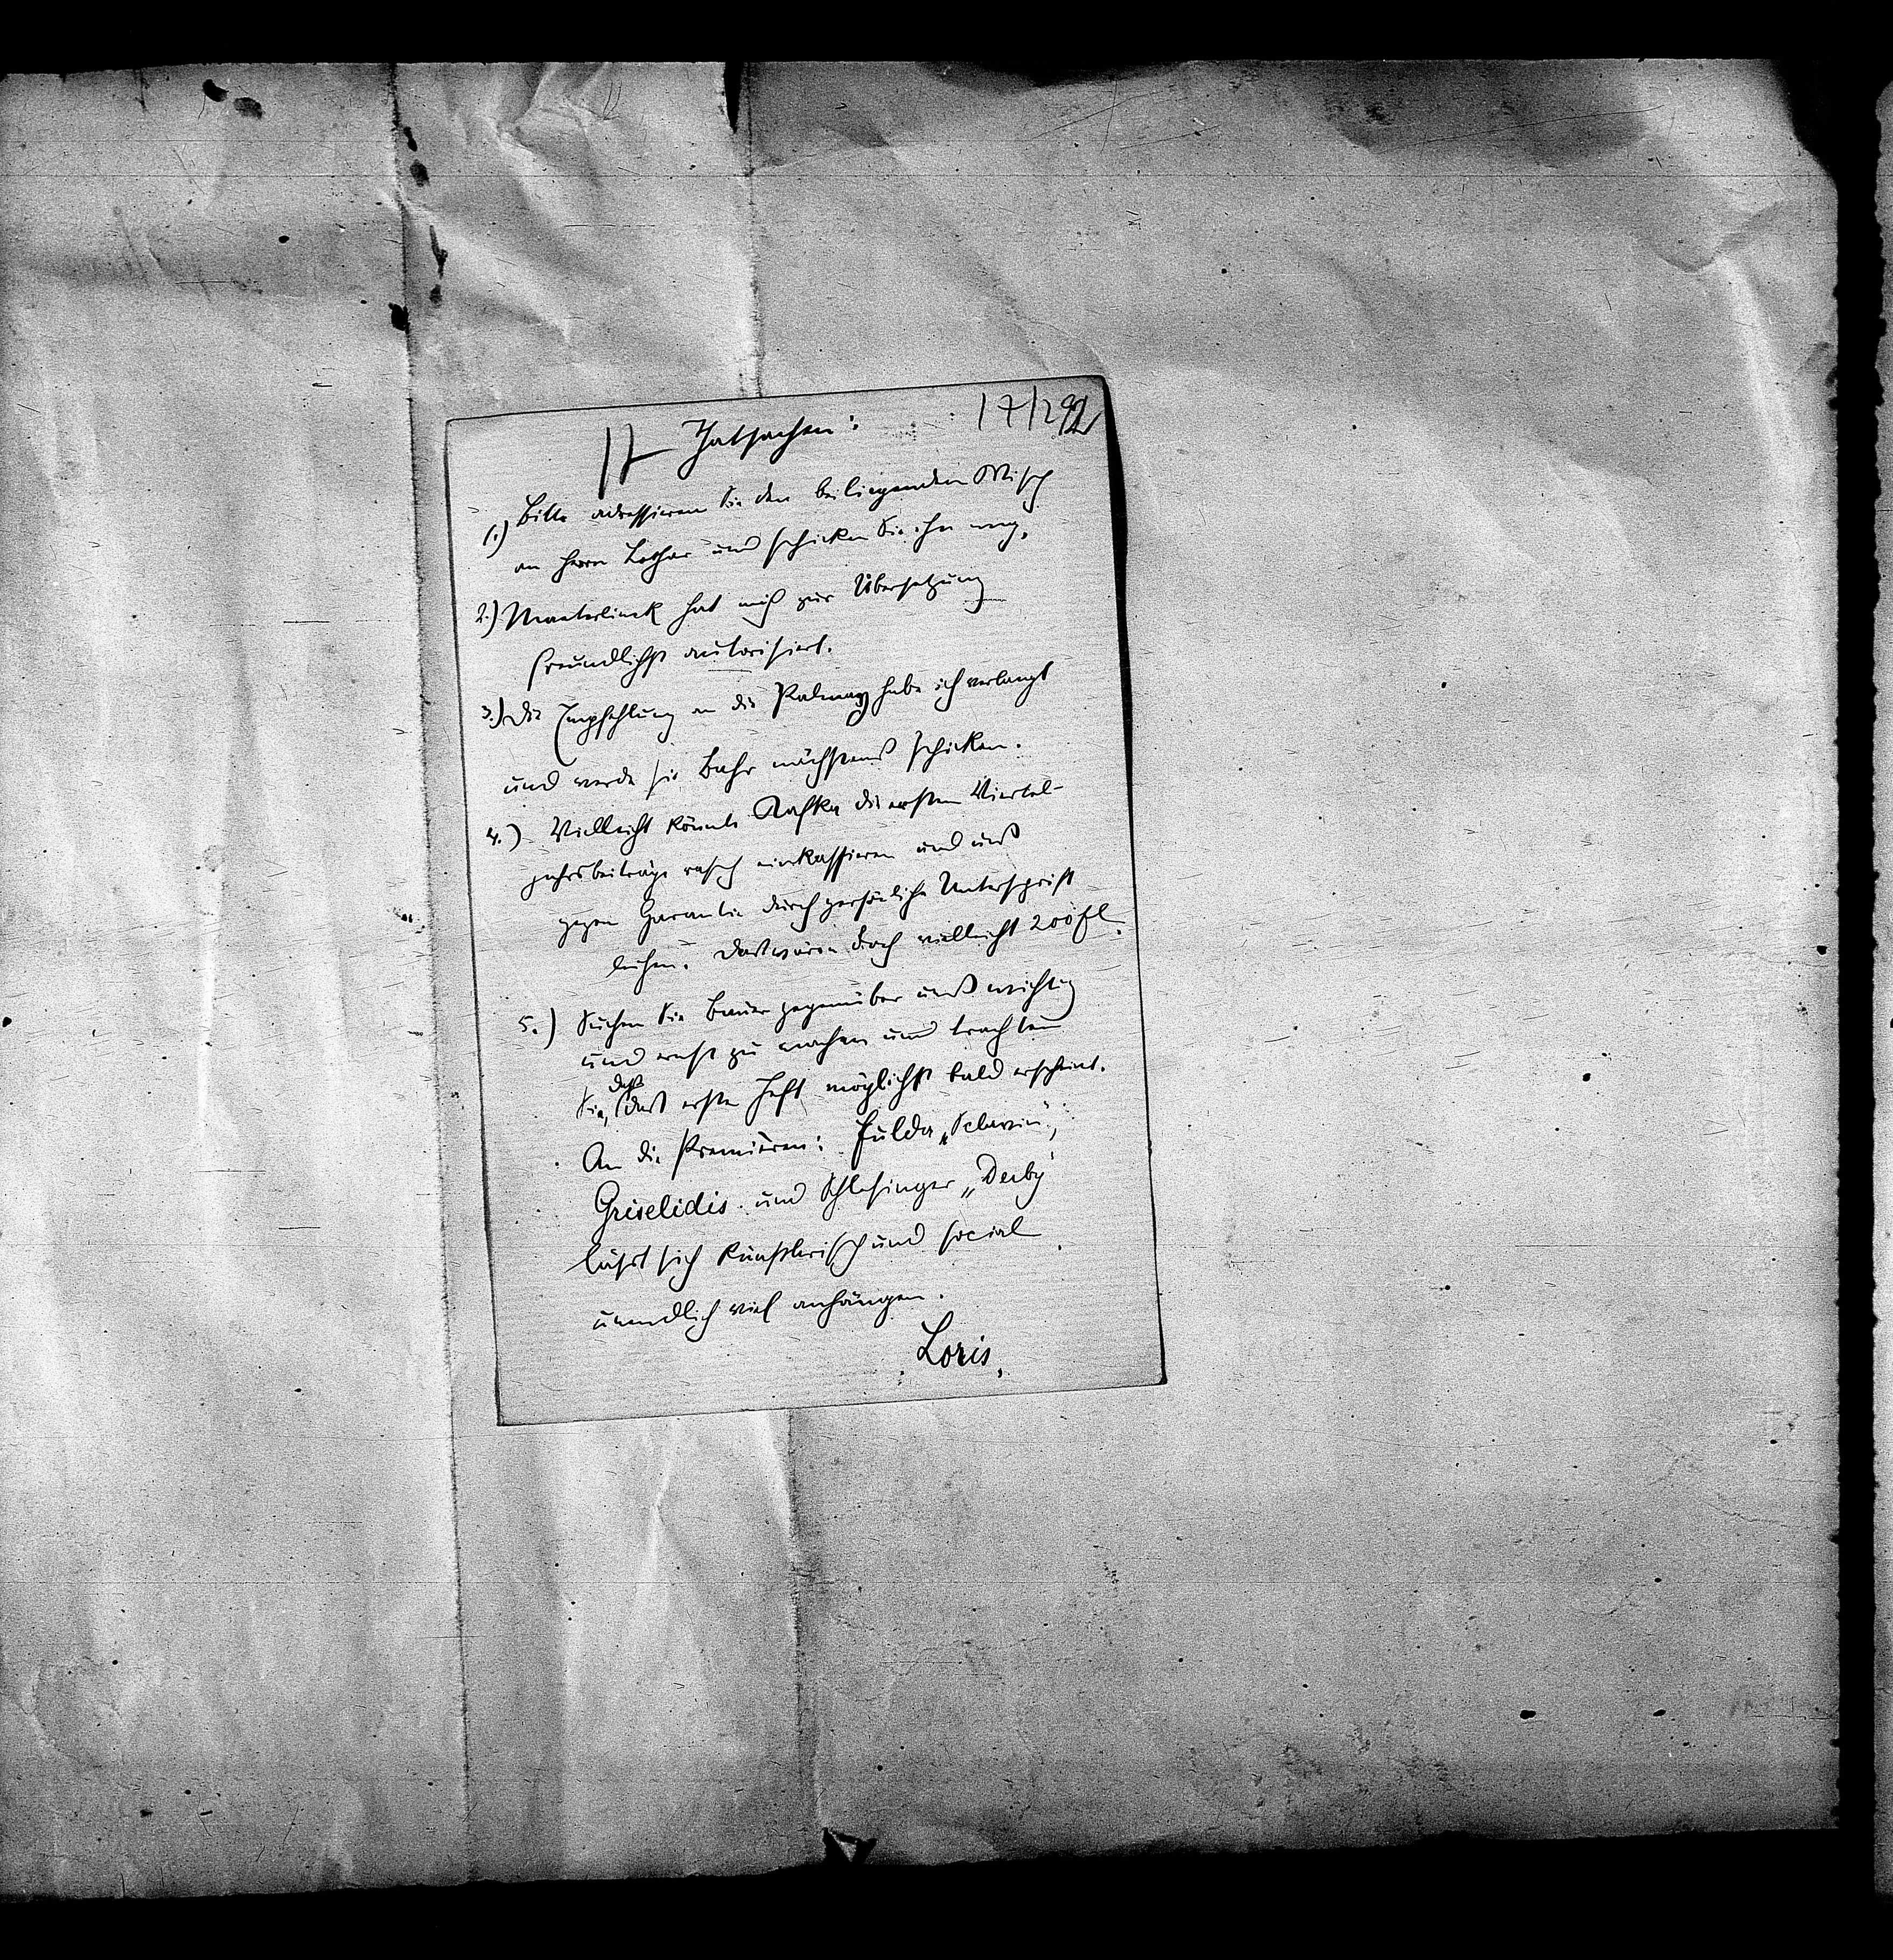 17 Thatsachen: 17/2 92
1.) Bitte adressieren Sie den beiliegenden Wisch
an Herrn Lothar und schicken Sie ihn weg.
2.) Maeterlinck hat mich zur Übersetzung
freundlichst autorisiert.
3.) Die Empfehlung an die Palmay habe ich verlangt
und werde sie Bahr nächstens schicken.
4.) Vielleicht könnte Kafka die ersten Viertel-
jahrsbeiträge rasch einkassieren und uns
gegen Garantie durch persönliche Unterschrift
leihen. Das wären doch vielleicht 200 fl.
5.) Suchen Sie Bauer gegenüber uns wichtig
und ernst zu machen und trachten
Sie, dass das erste Heft möglichst bald erscheint.
An die Premièren: Fulda „Sclavin“,
Griselidis und Schlesinger „Derby“
lässt sich künstlerisch und social
unendlich viel anhängen.
Loris.